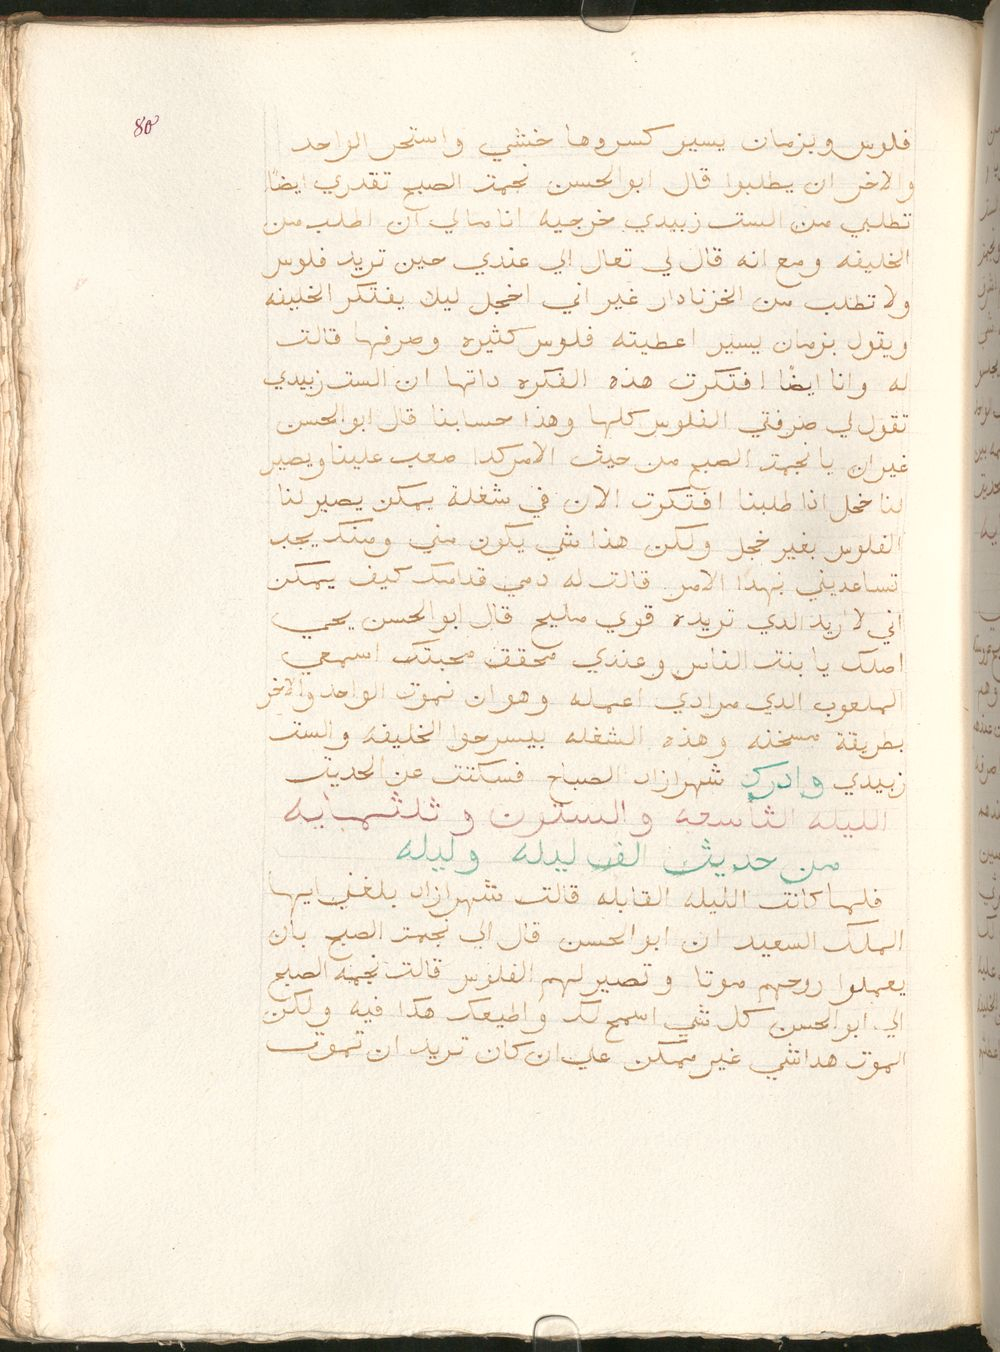 80
فلوس وبزمان يسير كسروها خشي واستحر الواحد
والاخر ان يطلبوا قال ابو الحسن نجمت الصبح تقدري ايضًا
تطلبي من الست زبيدي خرجيه انا مالي آن اطلب من
الخليفه ومع انه قال لي تعال الي عندي حين تريد فلوس
ولا تطلب من الخزنادار غير اني اخجل ليلا يفتكر الخليفه
ويقول بزمان يسير اعطيته فلوس كثيره وصرفها قالت
له وانا ايضًا افتكرت هذه الفكره داتها ان الست زبيدي
تقول لي صرفتي الفلوس كلها وهذا حسابنا قال ابو الحسن
غير ان يا نجمت الصبح من حيث الامر كدا صعب علينا ويصير
لنا خجل اذا طلبنا افتكرت الان في شغلة يمكن يصير لنا
الفلوس بغير خجل ولكن هذا شي يكون مني ومنك يجب
تساعديني بهدا الامر قالت له دمي قدامك كيف يمكن
اني لا اريد الدي تريده قوي مليح قال ابو الحسن يحمي
اصلك يا بنت الناس وعندي محقق محبتك اسمعي
الملعوب الدي مرادي اعمله وهو ان نموت الواحد والاخر
بطريقة مسخنه وهذه الشغله بيسرحوا الخليفه والست
زبيدي وادرك شهرازاد الصباح فسكتت عن الحديث
الليله التاسعه والستون وثلثمايه
من حديث الف ليله وليله
فلما كانت الليله القابله قالت شهرازاد بلغني ايها
الملك السعيد ان ابو الحسن قال الي نجمت الصبح بان
يعملوا روحهم موتا وتصير لهم الفلوس قالت نجمه الصبح
الي ابو الحسن كل شي اسمح لك واطيعك هكدا فيه ولكن
الموت هدا شي غير ممكن علي ان كان تريد ان تموت